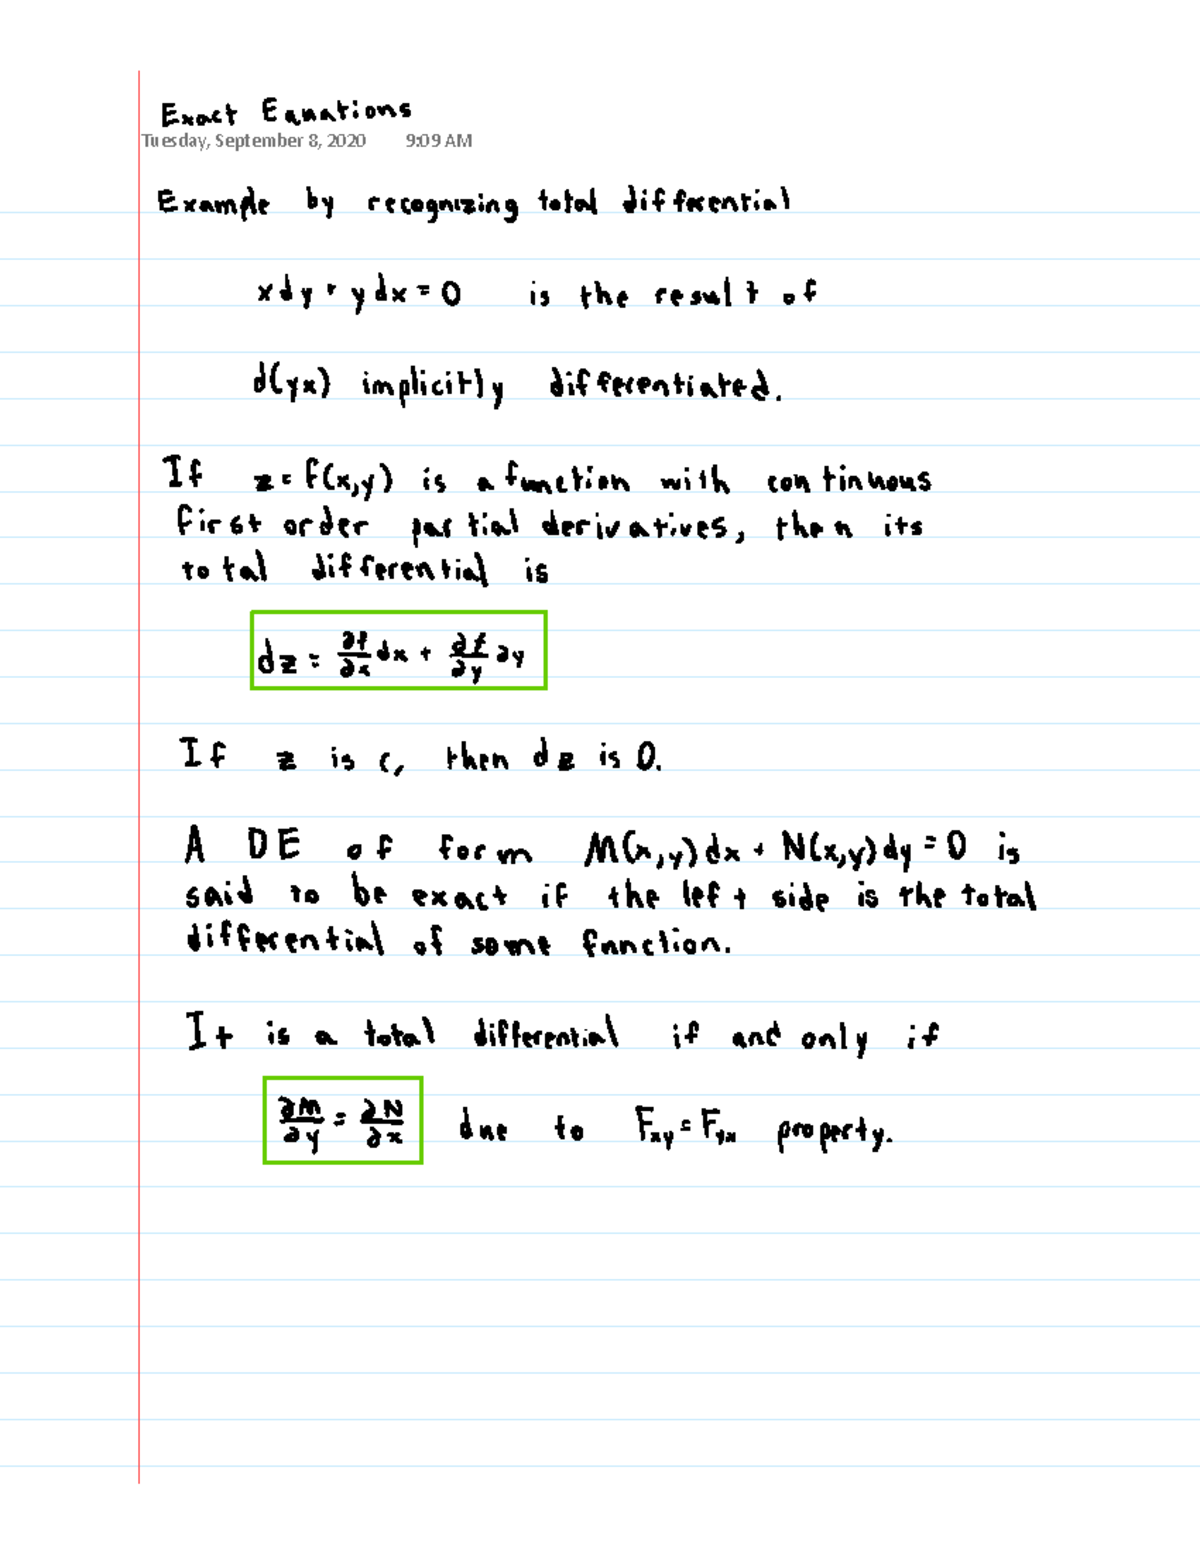 Exact Equations
Tuesday, September 8, 2020 9:09 AM
Example by recognizing total differential
xdy + ydx = 0 is the result of
d(yx) implicitly differentiated.
If z = f(x,y) is a function with continuous
first order partial derivatives, then its
total differential is
dz = ∂f/∂x dx + ∂f/∂y ∂y
If z is c, then dz is 0.
A DE of form M(x,y)dx + N(x,y)dy = 0 is
said to be exact if the left side is the total
differential of some function.
It is a total differential if and only if
∂M/∂y = ∂N/∂x due to Fxy = Fyx property.